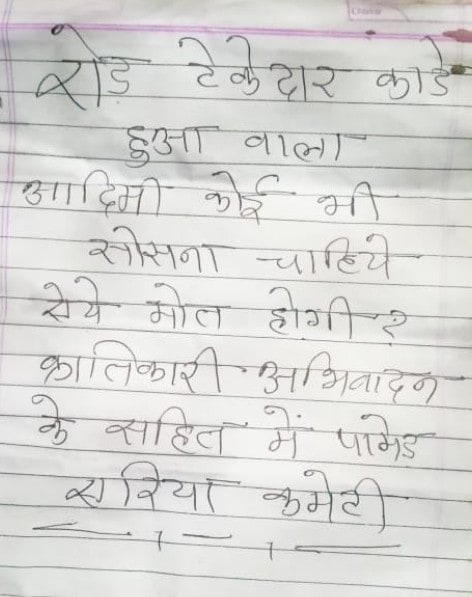 रोड टेकेदार काडे
हुआ वाला
आदिमी कोई भी
सोसना चाहिये
सेये मोत होगी ?
क्रातिकारी अभिवादन
के सहित में पामेड
एरिया कमेटी